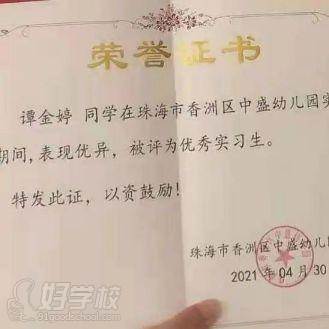 荣誉证书
谭金婷 同学在珠海市香洲区中盛幼儿园实
期间，表现优异，被评为优秀实习生。
特发此证，以资鼓励！
珠海市香洲区中盛幼儿园
2021 年 04 月 30
好学校
91goodschool.com